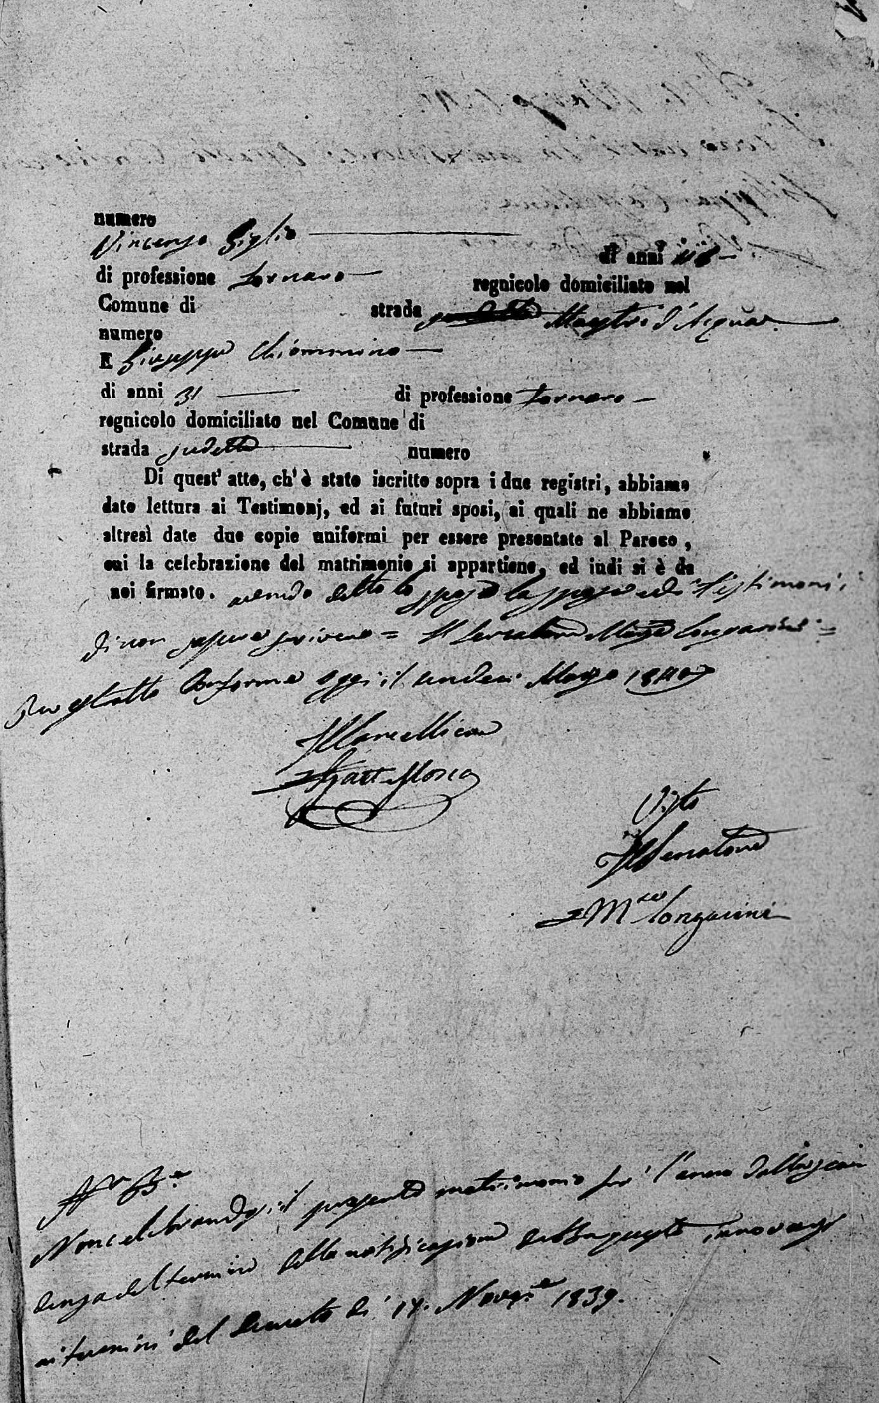 numero
Vincenzo Giglio
di anni
di professione Fornaro
regnicolo domiciliato nel
Comune di
strada Mastri d'Acqua
numero
E Giuseppe Chiommino
di anni 31 di professione Fornaro
regnicolo domiciliato nel Comune di
strada sudetta numero
Di quest' atto, ch' è stato iscritto sopra i due registri, abbiamo
dato lettura ai Testimonj, ed ai futuri sposi, ai quali ne abbiamo
altresì date due copie uniformi per essere presentate al Paroco,
cui la celebrazione del matrimonio si appartiene, ed indi si è da
noi firmato. avendo detto lo sposo la sposa ed i Testimoni
di non sapere scrivere = Il Senatore Longarini =
Per estratto Conforme oggi il undeci Marzo 1840
Il Cancelliere
Gaet Mosca
Visto
Il Senatore
Longarini
Non celebrandosi il presente matrimonio per l'anno dalla scadenza
del termine della notificazione
ai termini del Decreto di 14. Nov. 1839.